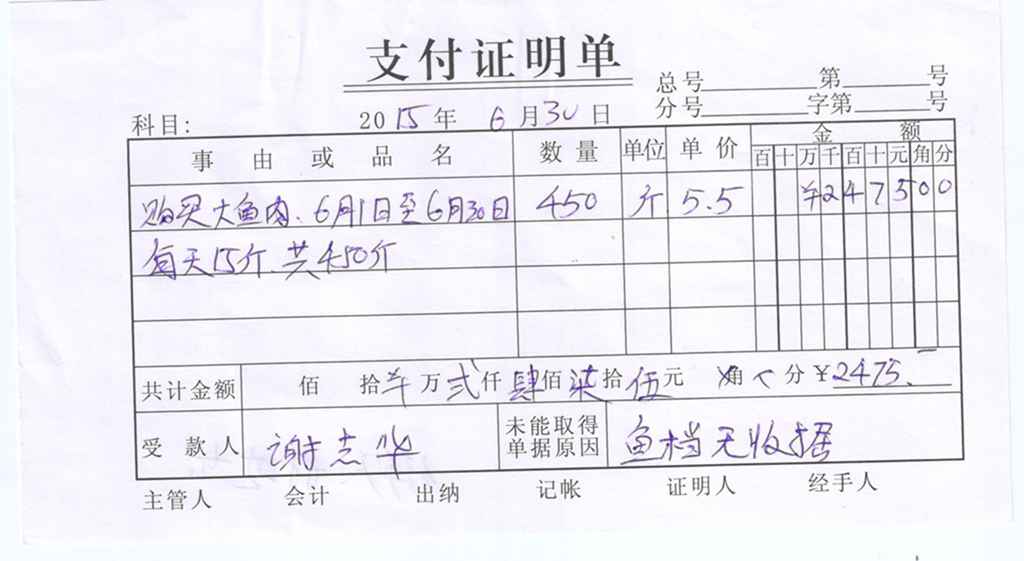 支付证明单
总号 第 号
分号 字第 号
科目: 2015年 6月30日
事由或品名 数量 单位 单价 金额
百 十 万 千 百 十 元 角 分
购买大鱼肉、6月1日至6月30日 450 斤 5.5 ¥247500
每天15斤、共450斤
共计金额 佰 拾 万 贰仟 肆佰 柒拾 伍元 角 分 ¥2475.
受款人 谢志华 未能取得单据原因 鱼档无收据
主管人 会计 出纳 记帐 证明人 经手人